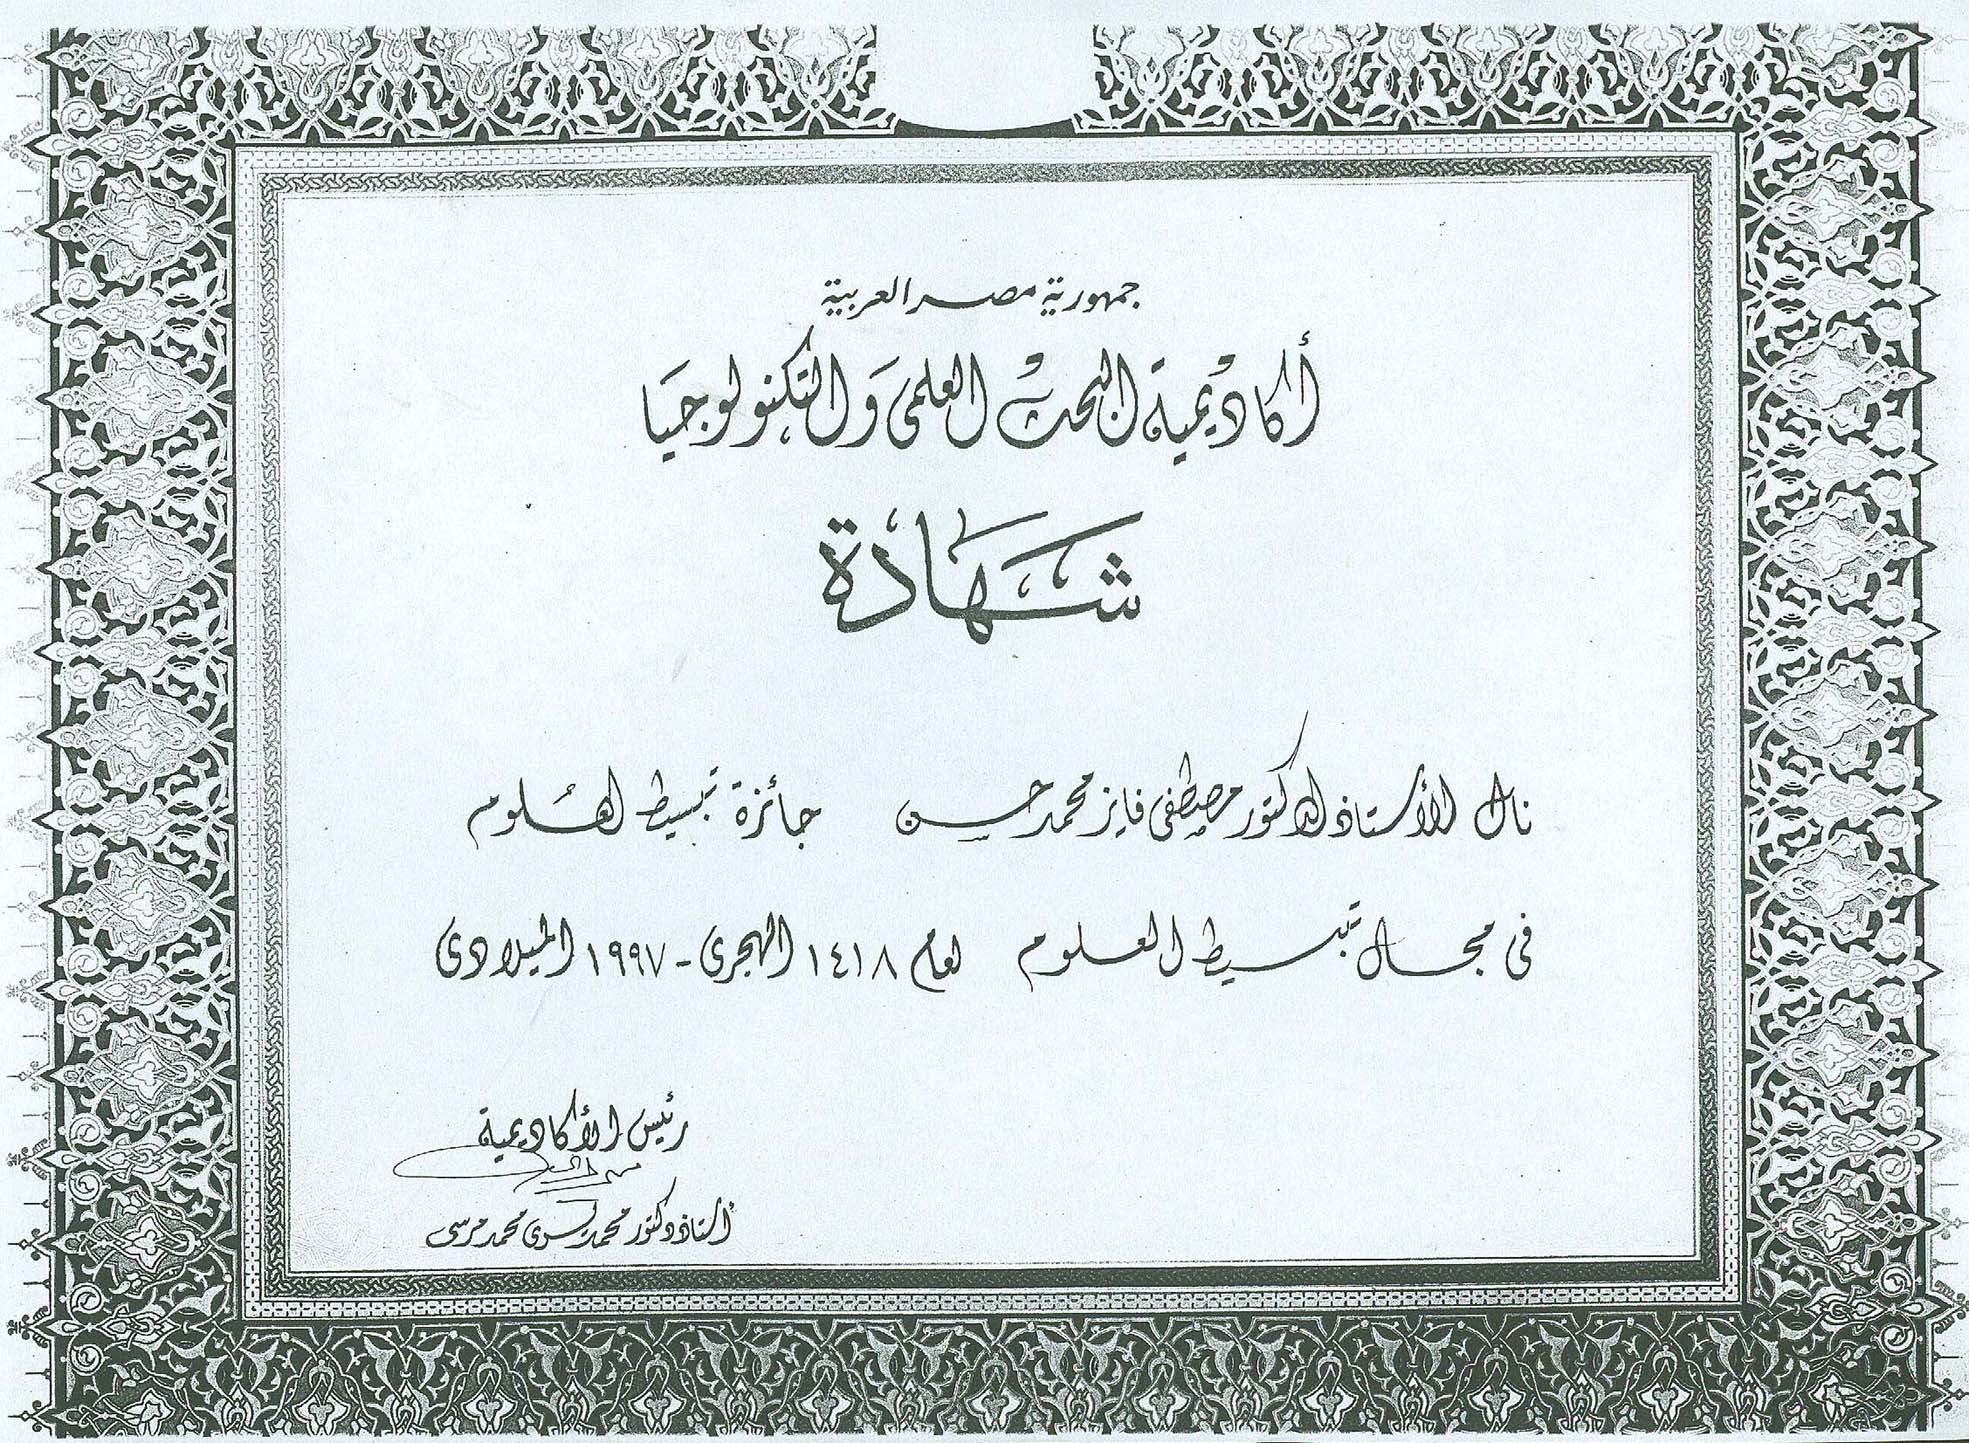 جمهورية مصر العربية
أكاديمية البحث العلمى والتكنولوجيا
شهادة
نال الأستاذ الدكتور مصطفى فايز محمد حسن جائزة تبسيط العلوم
فى مجال تبسيط العلوم لعام ١٤١٨ الهجرى - ١٩٩٧ الميلادى
رئيس الأكاديمية
أستاذ دكتور محمد يسرى محمد مرسى